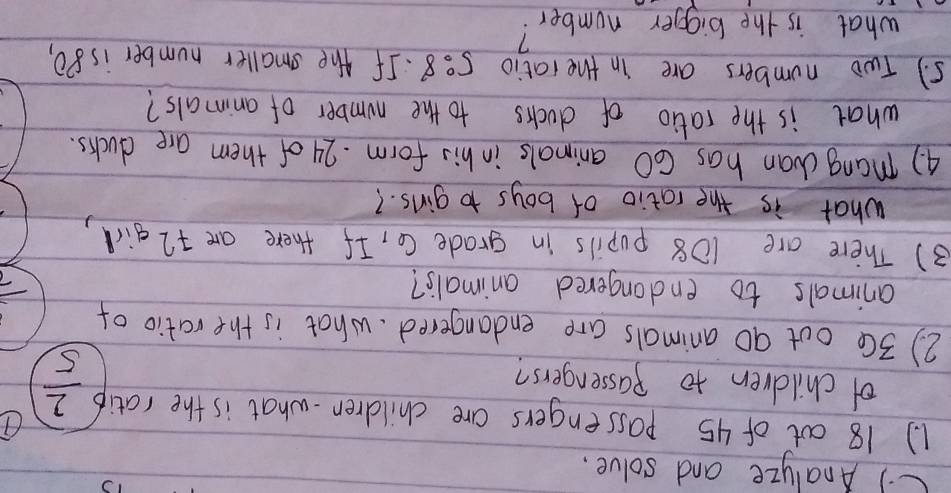 C.) Analyze and solve.
1.) 18 out of 45 passengers are children. what is the ratio
of children to passengers? 2/5
2.) 36 out 90 animals are endangered. what is the ratio of
animals to endangered animals?
3) There are 108 pupils in grade 6, If there are 72 girl,
what is the ratio of boys to girls.?
4.) Mang Juan has 60 animals in his farm. 24 of them are ducks.
what is the ratio of ducks to the number of animals?
5.) Two numbers are in the ratio 5:8. If the smaller number is 80,
what is the bigger number?